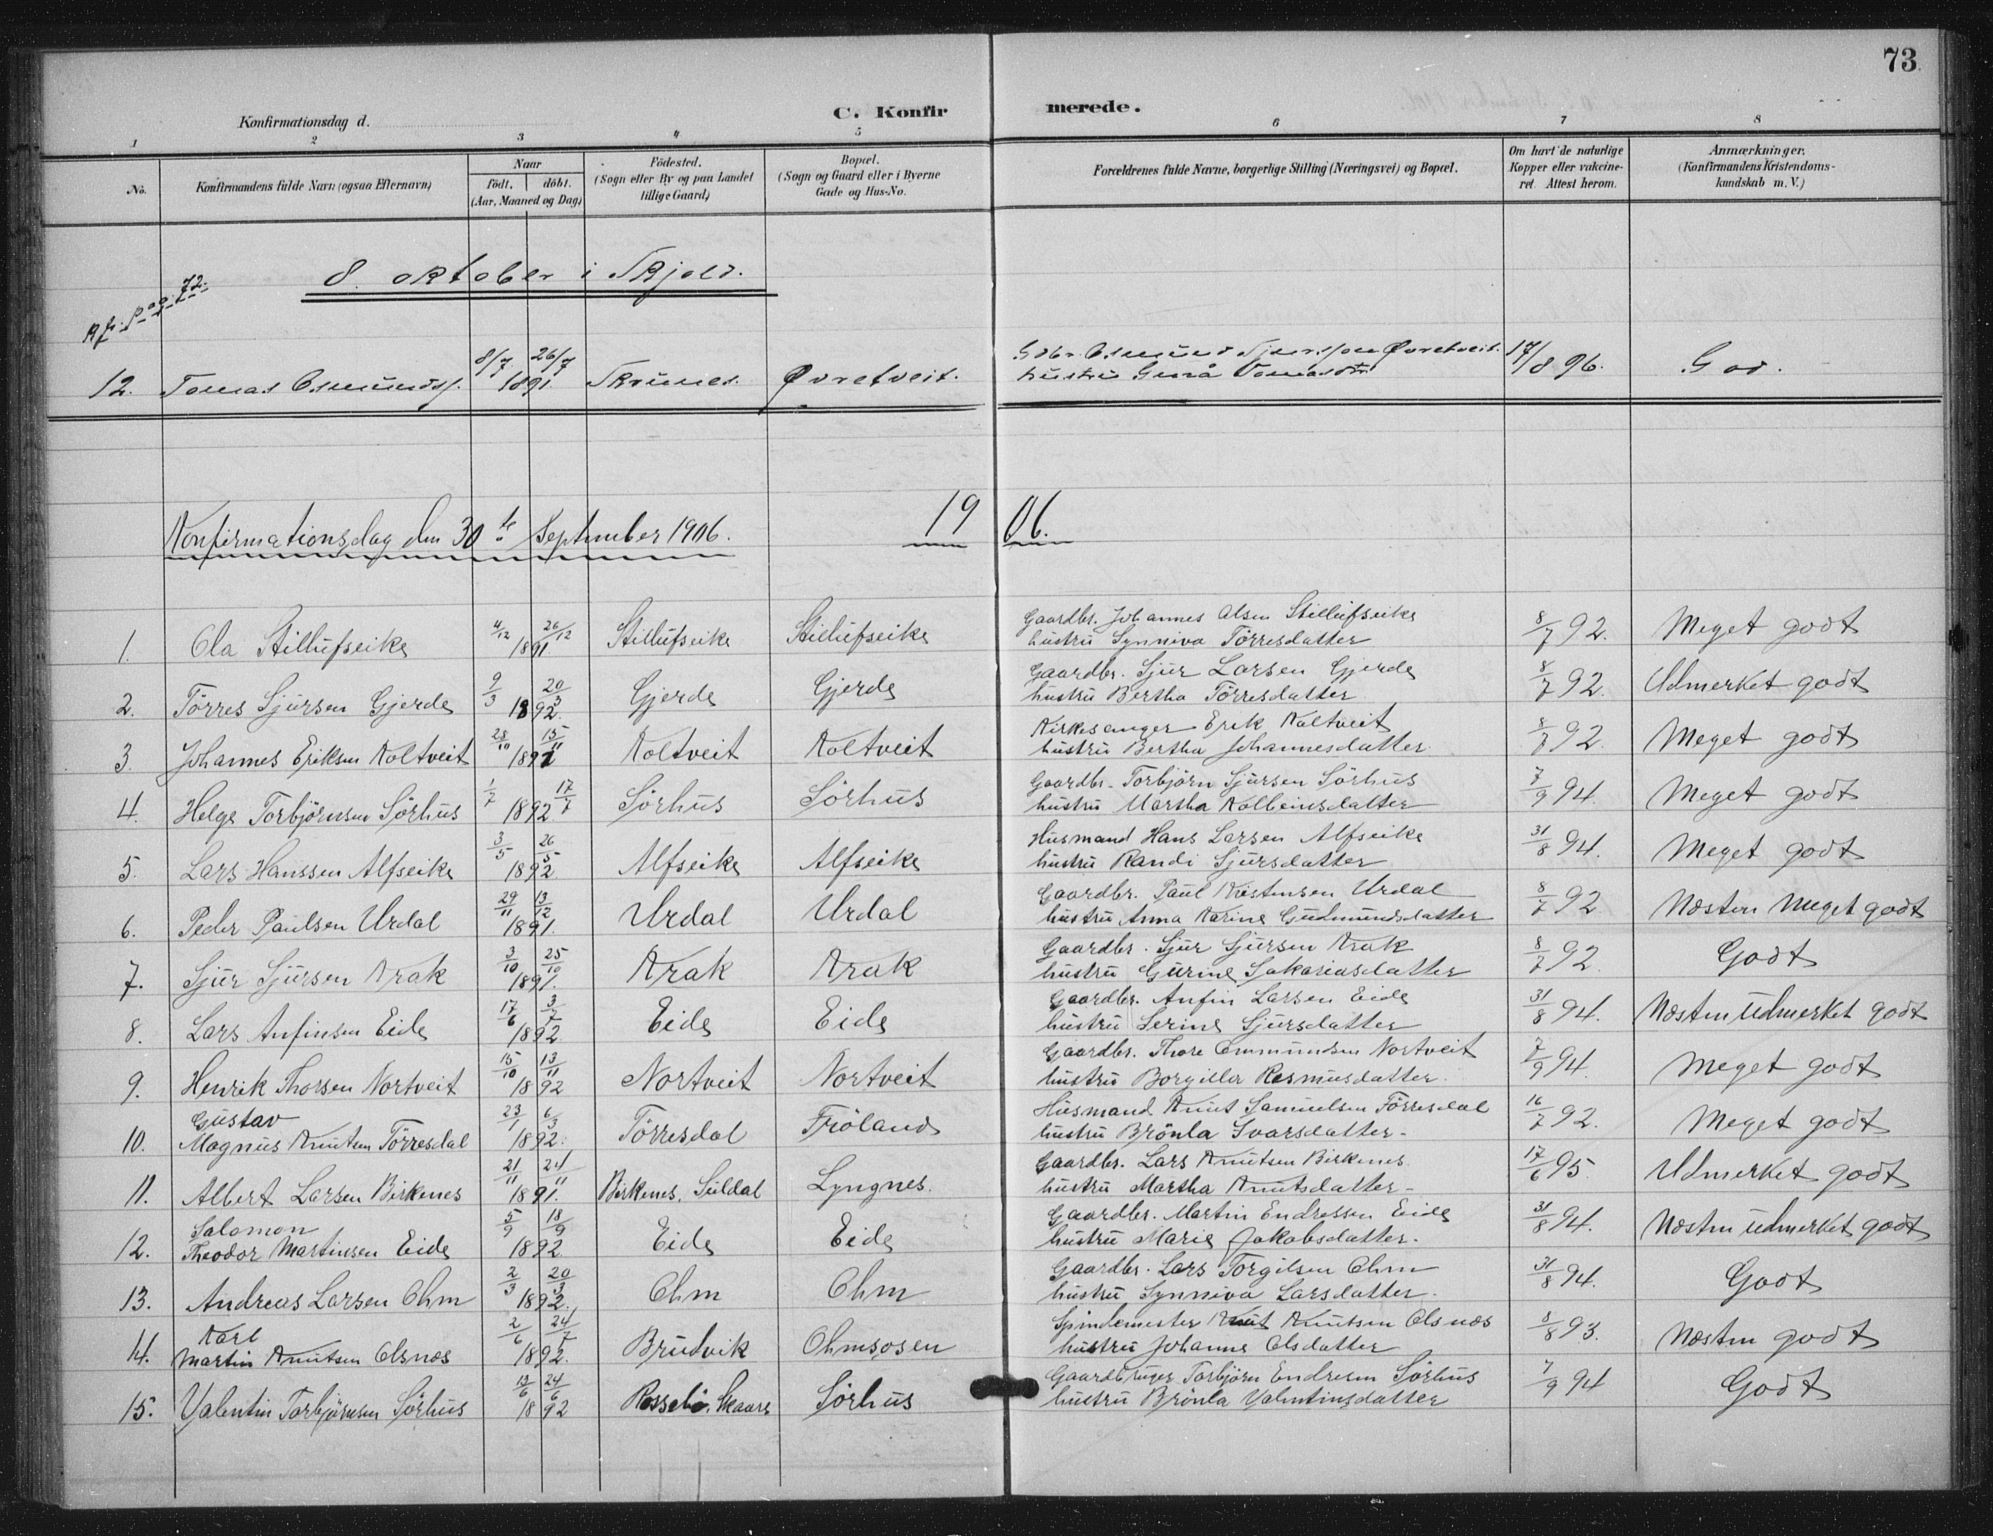 73.
C. Konfirmerede.
Konfirmationsdag d.
1 2 3 4 5 6 7 8
No.
Konfirmandens fulde Navn (ogsaa Efternavn)
Naar
födt. döbt.
(Aar, Maaned og Dag)
Födested.
(Sogn eller By og paa Landet
tillige Gaard)
Bopæl.
(Sogn og Gaard eller i Byerne
Gade og Hus-No.
Forældrenes fulde Navne, borgerlige Stilling (Næringsvei) og Bopæl.
Om havt de naturlige
Kopper eller vakcine-
ret. Attest herom.
Anmærkninger.
(Konfirmandens Kristendoms-
kundskab m. V.)
8. oktober i Skjold.
Kfr. pag. 72.
12. Tomas Osmunds. 8/7 26/7 1891. Skrunes. Øvretveit. Gdbr. Osmund Øvretveit. 17/8 96. God.
hustru Gurå Tomasdtr.
Konfirmationsdag den 30te September 1906. 1906.
1. Ola Stillufseike 4/12 26/12 1891. Stillufseike Stillufseike Gaardbr. Johannes Olsen Stillufseike 8/7 92. Meget godt
hustru Synniva Törresdatter
2. Törres Sjursen Gjerde 9/3 20/3 1892. Gjerde Gjerde Gaardbr. Sjur Larsen Gjerde 8/7 92. Udmerket godt
hustru Bertha Törresdatter
3. Johannes Eriksen Koltveit 28/10 15/11 1891 Koltveit Koltveit Kirkesanger Erik Koltveit 8/7 92. Meget godt
hustru Bertha Johannesdatter.
4. Helge Torbjörnsen Sörhus 1/7 17/7 1892 Sörhus Sörhus Gaardbr. Torbjörn Sjursen Sörhus 7/9 94. Meget godt
hustru Martha Kolbeinsdatter
5. Lars Hanssen Alfseike 3/5 26/5 1892 Alfseike Alfseike Husmand Hans Larsen Alfseike 31/8 94. Meget godt
hustru Randi Sjursdatter
6. Peder Paulsen Urdal 29/11 13/12 1891. Urdal Urdal Gaardbr. Paul Urdal 8/7 92. Næsten meget godt
hustru Anna Karine Gudmundsdatter
7. Sjur Sjursen Krak 3/10 25/10 1891. Krak Krak Gaardbr. Sjur Sjursen Krak 8/7 92. Godt
hustru Gurine Sakariasdatter
8. Lars Anfinsen Eide 17/6 3/7 1892. Eide Eide Gaardbr. Anfin Larsen Eide 31/8 94. Næsten udmerket godt
hustru Serine Sjursdatter
9. Henrik Thorsen Nortveit 15/10 13/11 1892 Nortveit Nortveit Gaardbr. Thore Nortveit 7/9 94. Meget godt
hustru Borgilla Rasmusdatter.
10. Gustav 23/1 6/3 1892. Törresdal Fröland Husmand Knut Samuelsen Törresdal 16/7 92. Meget godt
Magnus Knutsen Törresdal hustru Brönla Ivarsdatter.
11. Albert Larsen Birkenes 21/11 24/11 1891. Birkenes, Suldal Lyngnes. Gaardbr. Lars Knutsen Birkenes. 17/6 95. Udmerket godt
hustru Martha Knutsdatter.
12. Salomon 5/9 18/9 1892 Eide Eide Gaardbr. Martin Endresen Eide 31/8 94. Næsten udmerket godt
Theodor Martinsen Eide hustru Marie Jakobsdatter.
13. Andreas Larsen Ohm 2/3 20/3 1892. Ohm Ohm Gaardbr. Lars Torgilsen Ohm 31/8 94. Godt
hustru Synniva Larsdatter.
14. Karl 2/6 24/7 1892. Brudvik Ohmsosen Spindemester Knut Knutsen Olsnæs 8/8 93. Næsten godt
Martin Knutsen Olsnæs hustru Johanne Olsdatter
15. Valentin Torbjörnsen Sörhus 13/6 24/6 1892 Rossebö, Skaare Sörhus Gaardbruger Torbjörn Endresen Sörhus 7/9 94 Godt
hustru Brönla Valentinsdatter